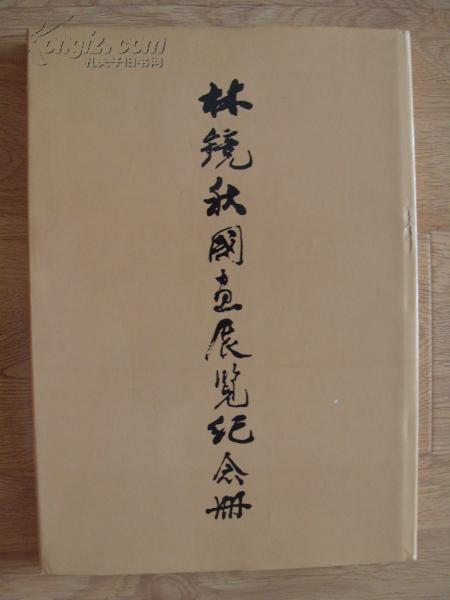 Kongfz.com
孔夫子旧书网
林镜秋國画展览纪念册